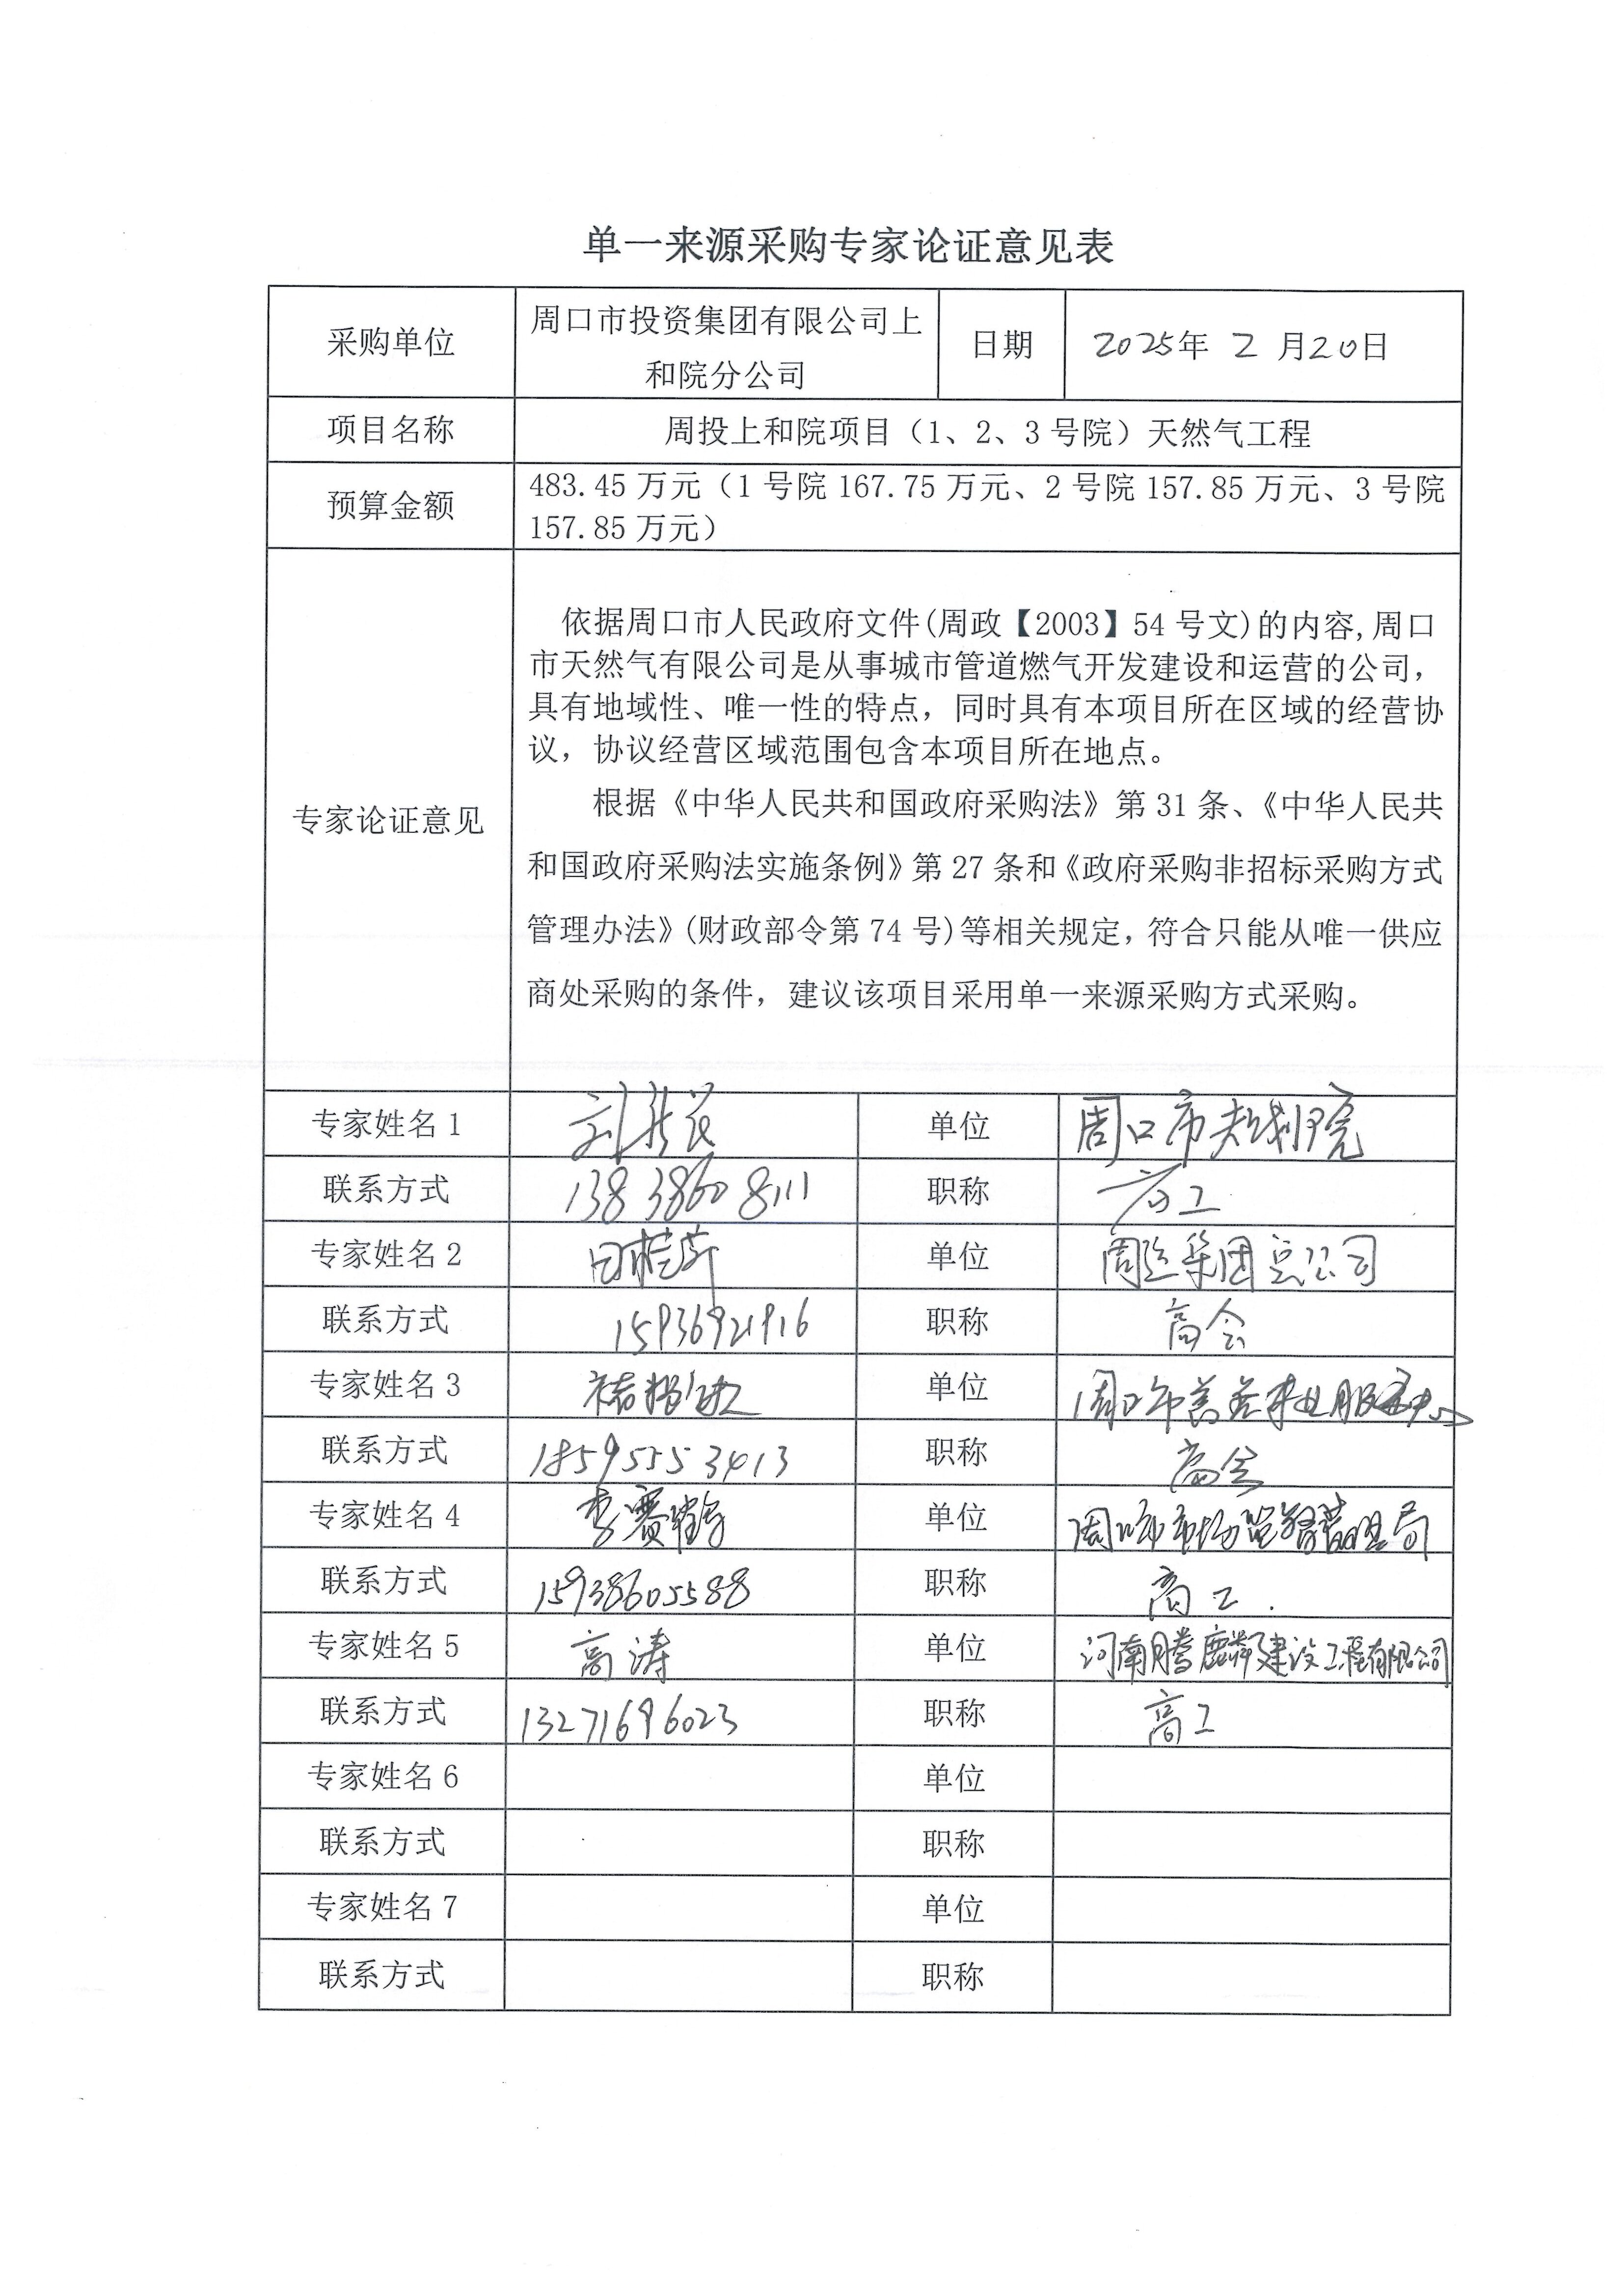 单一来源采购专家论证意见表
采购单位
周口市投资集团有限公司上
和院分公司
日期
2025年 2 月20日
项目名称
周投上和院项目（1、2、3号院）天然气工程
预算金额
483.45 万元（1 号院 167.75 万元、2 号院 157.85 万元、3 号院
157.85 万元）
专家论证意见
依据周口市人民政府文件(周政【2003】54 号文)的内容,周口
市天然气有限公司是从事城市管道燃气开发建设和运营的公司，
具有地域性、唯一性的特点，同时具有本项目所在区域的经营协
议，协议经营区域范围包含本项目所在地点。
根据《中华人民共和国政府采购法》第 31 条、《中华人民共
和国政府采购法实施条例》第 27 条和《政府采购非招标采购方式
管理办法》(财政部令第 74 号)等相关规定，符合只能从唯一供应
商处采购的条件，建议该项目采用单一来源采购方式采购。
专家姓名 1
单位
周口市规划院
联系方式
13838608111
职称
高工
专家姓名 2
单位
周运集团总公司
联系方式
15936921916
职称
高会
专家姓名 3
单位
联系方式
18595553413
职称
高会
专家姓名 4
单位
周口市市场监督管理局
联系方式
15938605588
职称
高工
专家姓名 5
高涛
单位
河南腾麟建设工程有限公司
联系方式
13271696023
职称
高工
专家姓名 6
单位
联系方式
职称
专家姓名 7
单位
联系方式
职称